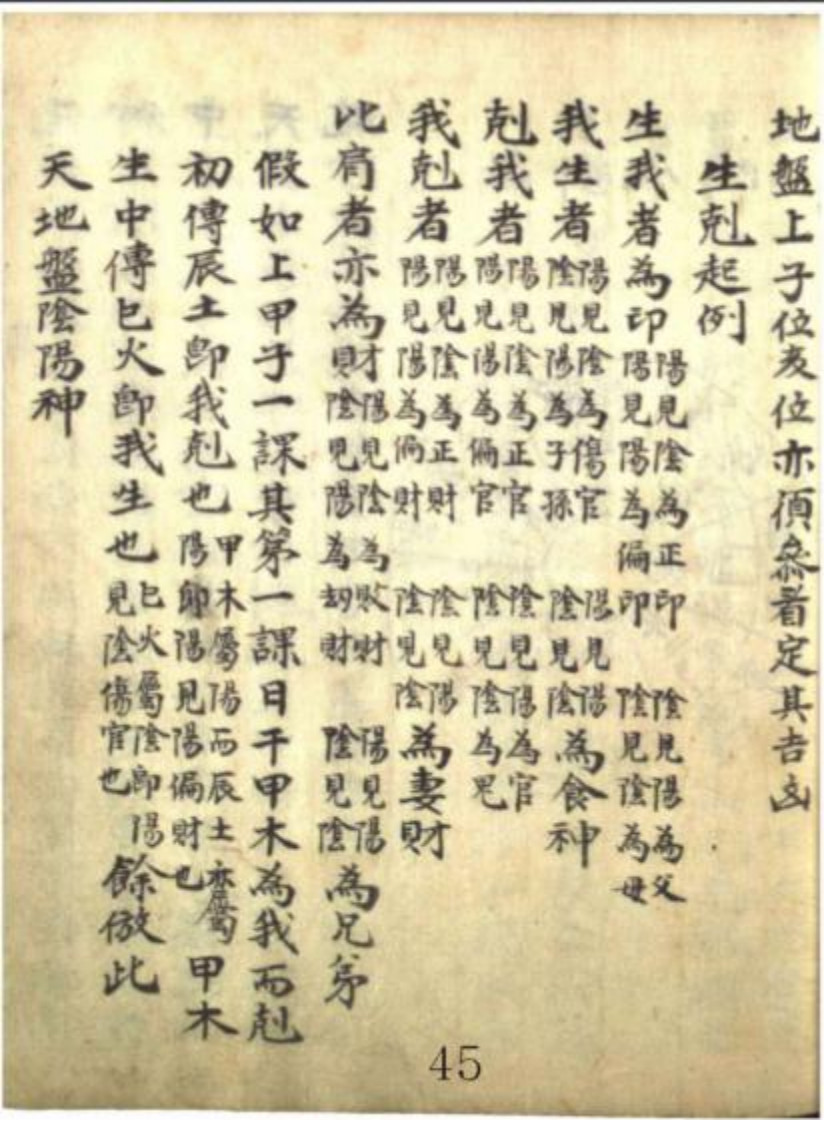 地盤上子位亥位亦須叅看定其吉凶
生剋起例
生我者為印 陽見陰為正印 陽見陽為偏印 陰見陽為父 陰見陰為母
我生者 陽見陰為傷官 陰見陽為子孫 陽見陽 陰見陰 為食神
剋我者 陽見陰為正官 陽見陽為偏官 陰見陽為官 陰見陰為鬼
我剋者 陽見陰為正財 陽見陽為偏財 陰見陽 陰見陰 為妻財
比肩者亦為財 陽見陰為敗財 陰見陽為刼財 陽見陽 陰見陰 為兄弟
假如上甲子一課其第一課日干甲木為我而剋
初傳辰土卽我剋也 甲木屬陽而辰土亦屬 陽卽陽見陽偏財也 甲木
生中傳巳火卽我生也 巳火屬陰卽陽 見陰傷官也 餘倣此
天地盤陰陽神
45